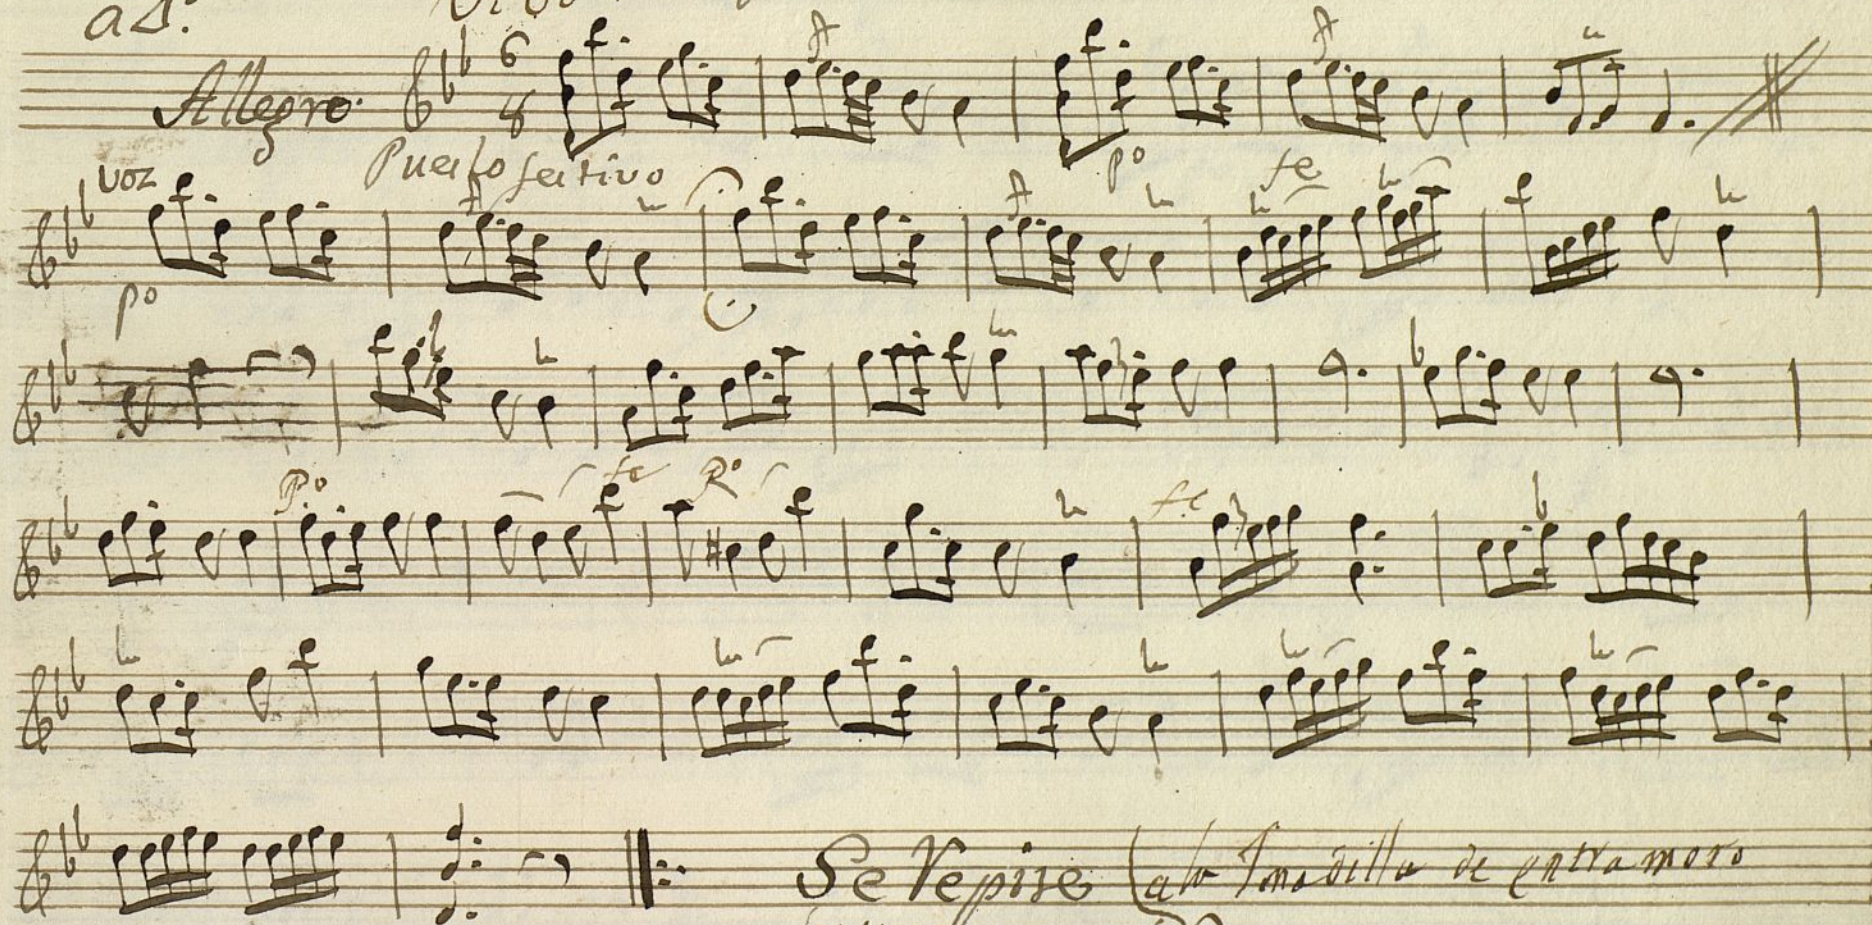 a Δ.º
Allegro.
6
8
Puerto festivo
po
fe
voz
po
Po
fe
Po
fe
Se Repite (a la Tonadilla de entra moro